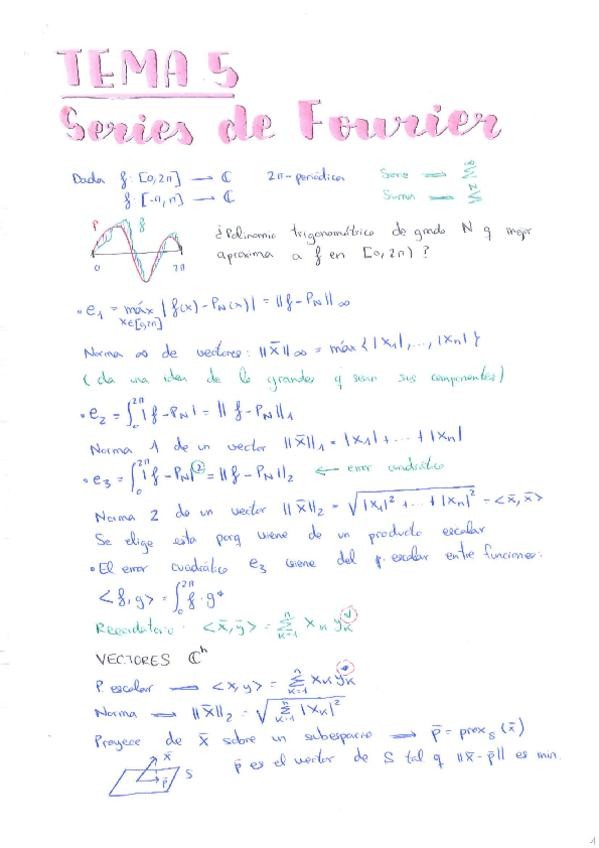 TEMA 5
Series de Fourier
Dada f: [0,2π] → ℂ 2π-periódica Serie → ∑^∞
f: [-π,π] → ℂ Suma → ∑^N
P f ¿Polinomio trigonométrico de grado N q mejor
0 2π aproxima a f en [0,2π)?
• e₁ = máx_{x∈[0,2π]} |f(x) - P_N(x)| = ||f - P_N||_∞
Norma ∞ de vectores: ||x̄||_∞ = máx {|x₁|, ..., |xₙ|}
(da una idea de lo grandes q sean sus componentes)
• e₂ = ∫₀^{2π} |f - P_N| = ||f - P_N||₁
Norma 1 de un vector ||x̄||₁ = |x₁| + ... + |xₙ|
• e₃ = ∫₀^{2π} |f - P_N|² = ||f - P_N||₂ ← error cuadrático
Norma 2 de un vector ||x̄||₂ = √(|x₁|² + ... + |xₙ|²) = <x̄, x̄>
Se elige esta porq viene de un producto escalar
• El error cuadrático e₃ viene del p. escalar entre funciones:
<f, g> = ∫₀^{2π} f · g*
Recordatorio: <x̄, ȳ> = ∑_{k=1}^{n} x_k y_k*
VECTORES ℂⁿ
P. escalar → <x, y> = ∑_{k=1}^{n} x_k y_k*
Norma → ||x̄||₂ = √(∑_{k=1}^{n} |x_k|²)
Proyecc de x̄ sobre un subespacio → p̄ = proy_S (x̄)
x̄ p̄ S p̄ es el vector de S tal q ||x̄ - p̄|| es min.
1